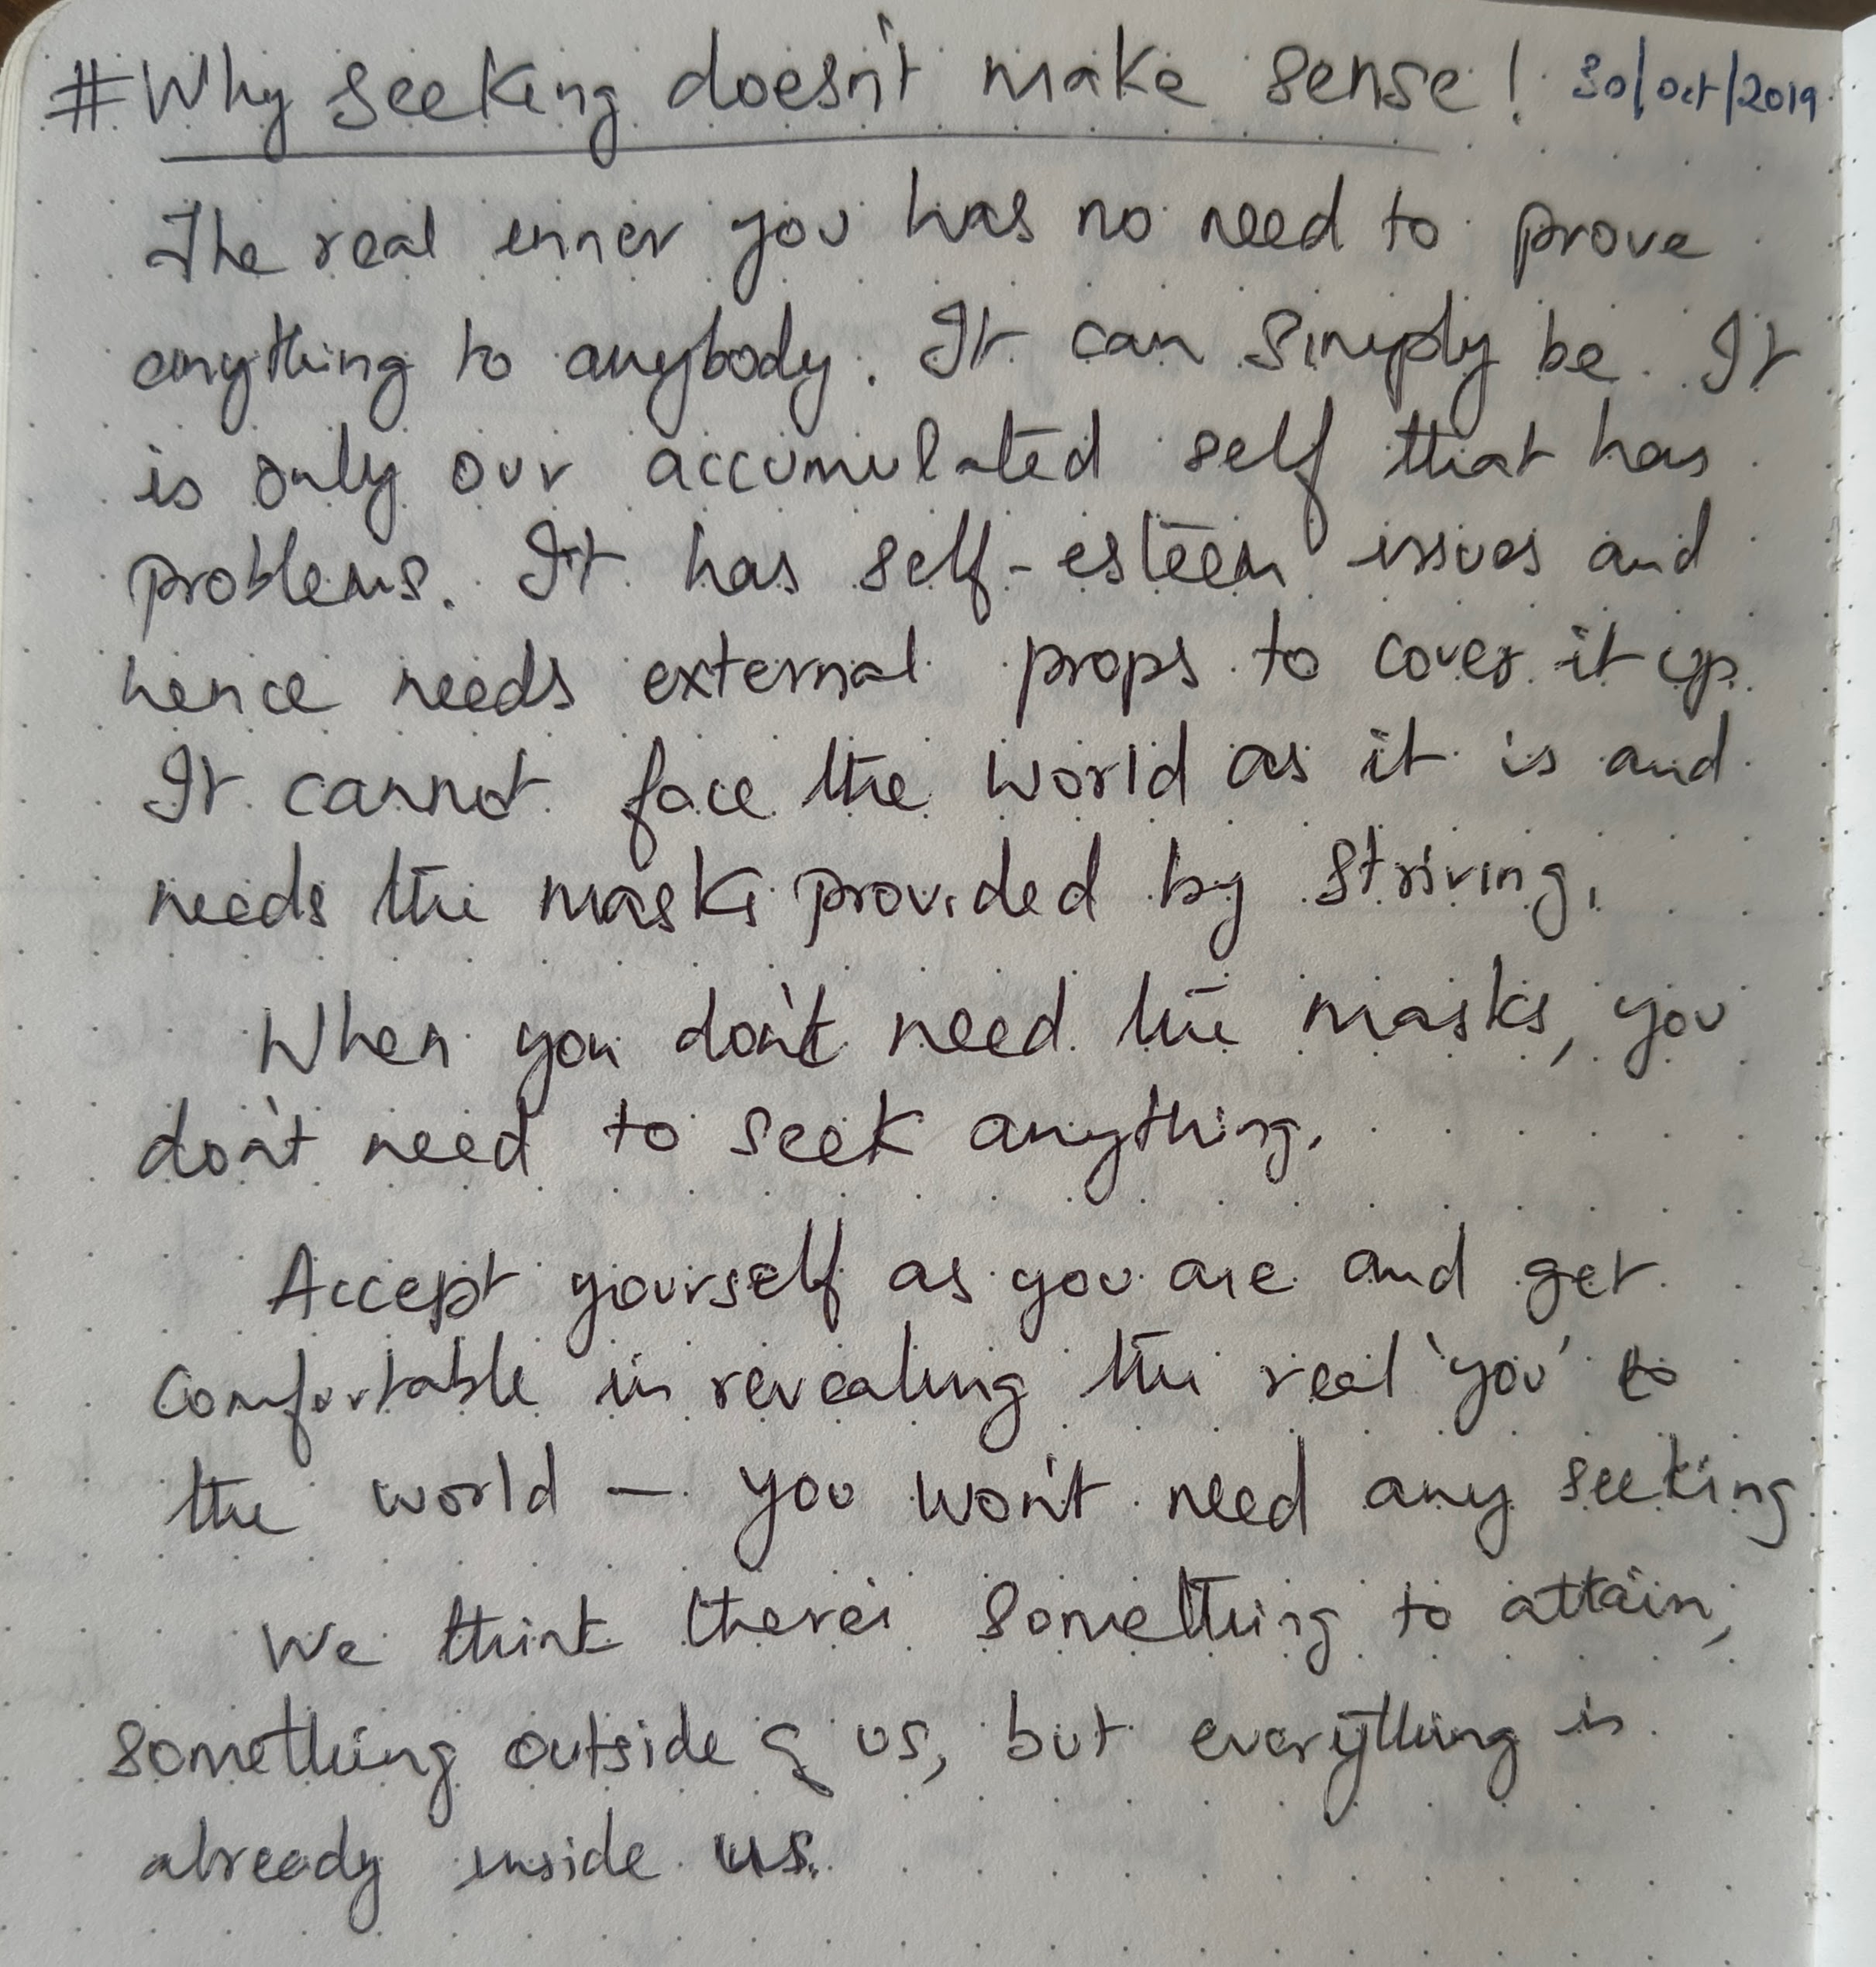 #Why seeking doesn't make sense! 30/Oct/2019
The real inner you has no need to prove
anything to anybody. It can simply be. It
is only our accumulated self that has
problems. It has self-esteem issues and
hence needs external props to cover it up.
It cannot face the world as it is and
needs the masks provided by striving.
When you don't need the masks, you
don't need to seek anything.
Accept yourself as you are and get
comfortable in revealing the real 'you' to
the world – you won't need any seeking
We think there's something to attain,
something outside of us, but everything is
already inside us.